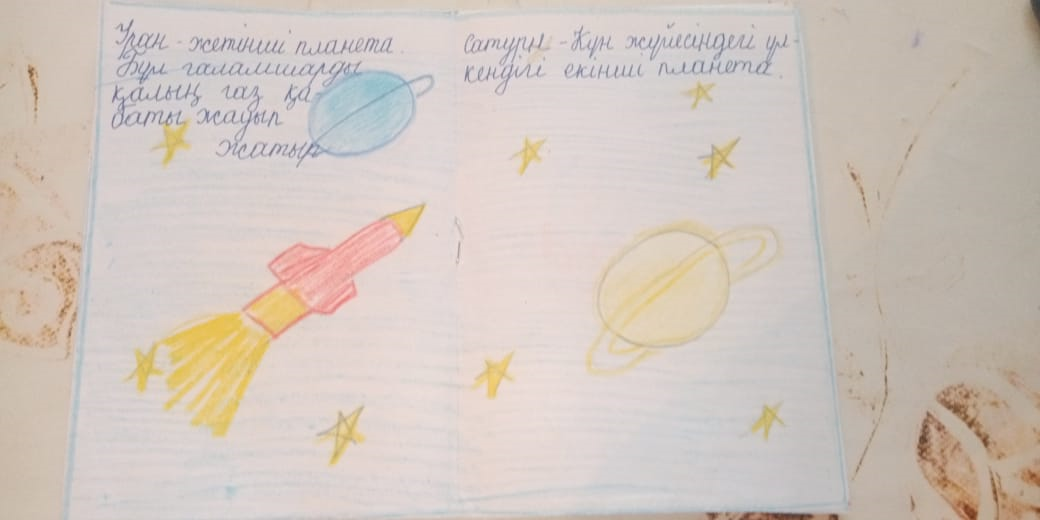 Уран - жетінші планета.
Бұл ғаламшарды
қалың газ қа-
баты жауып
жатыр
Сатурн - Күн жүйесіндегі үл-
кендігі екінші планета.